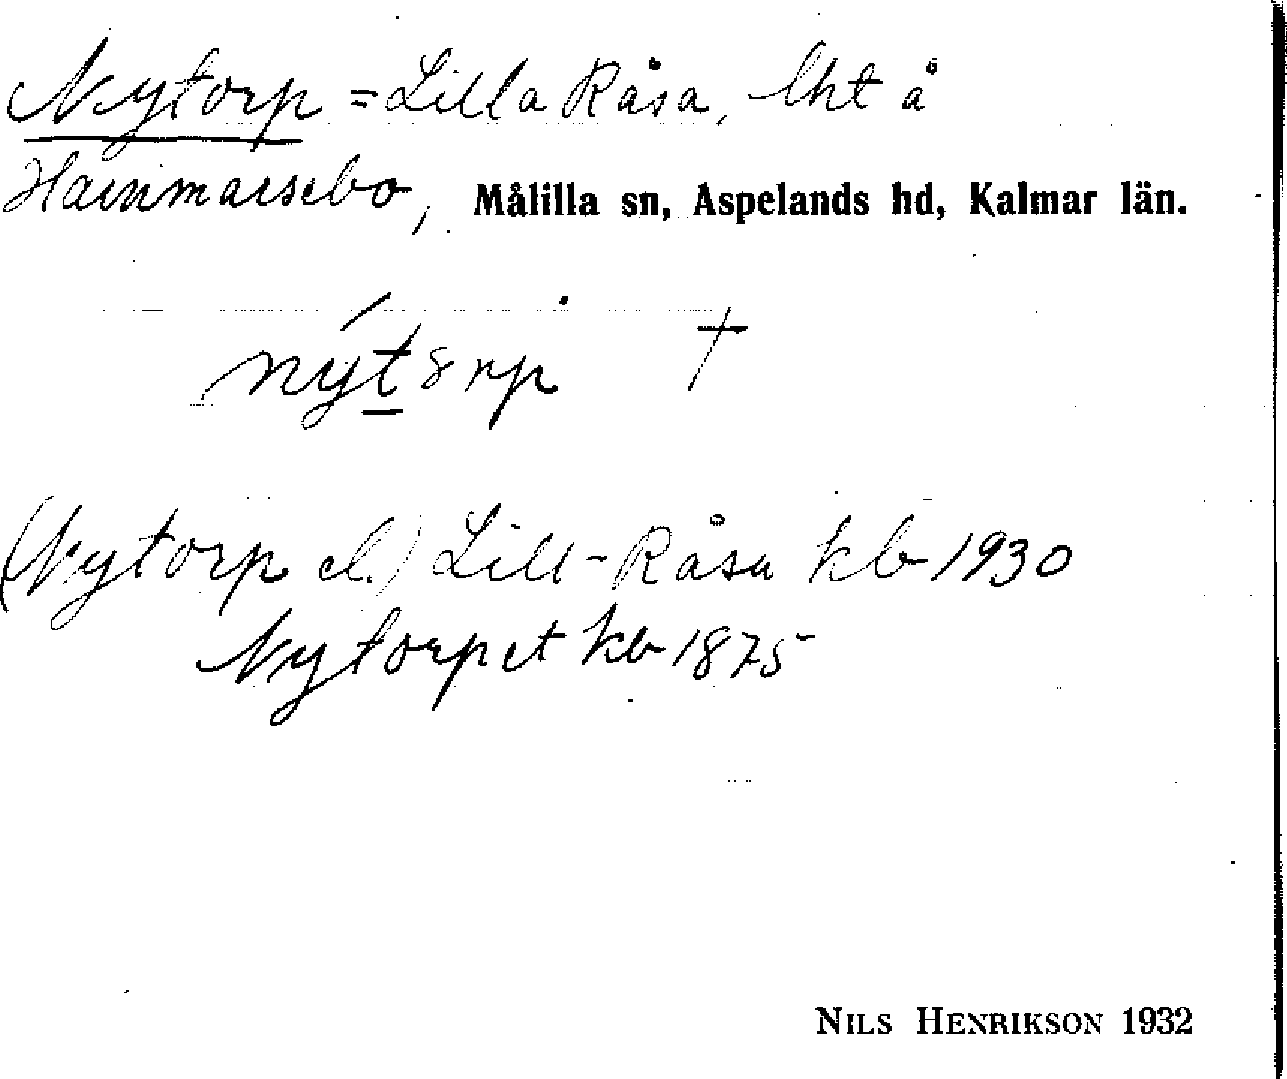 Nytorp = Lilla Råsa, lht å
Hammarsebo, Målilla sn, Aspelands hd, Kalmar län.
†
(Nytorp el.) Lill-Råsa kb 1930
Nytorpet kb 1875
NILS HENRIKSON 1932